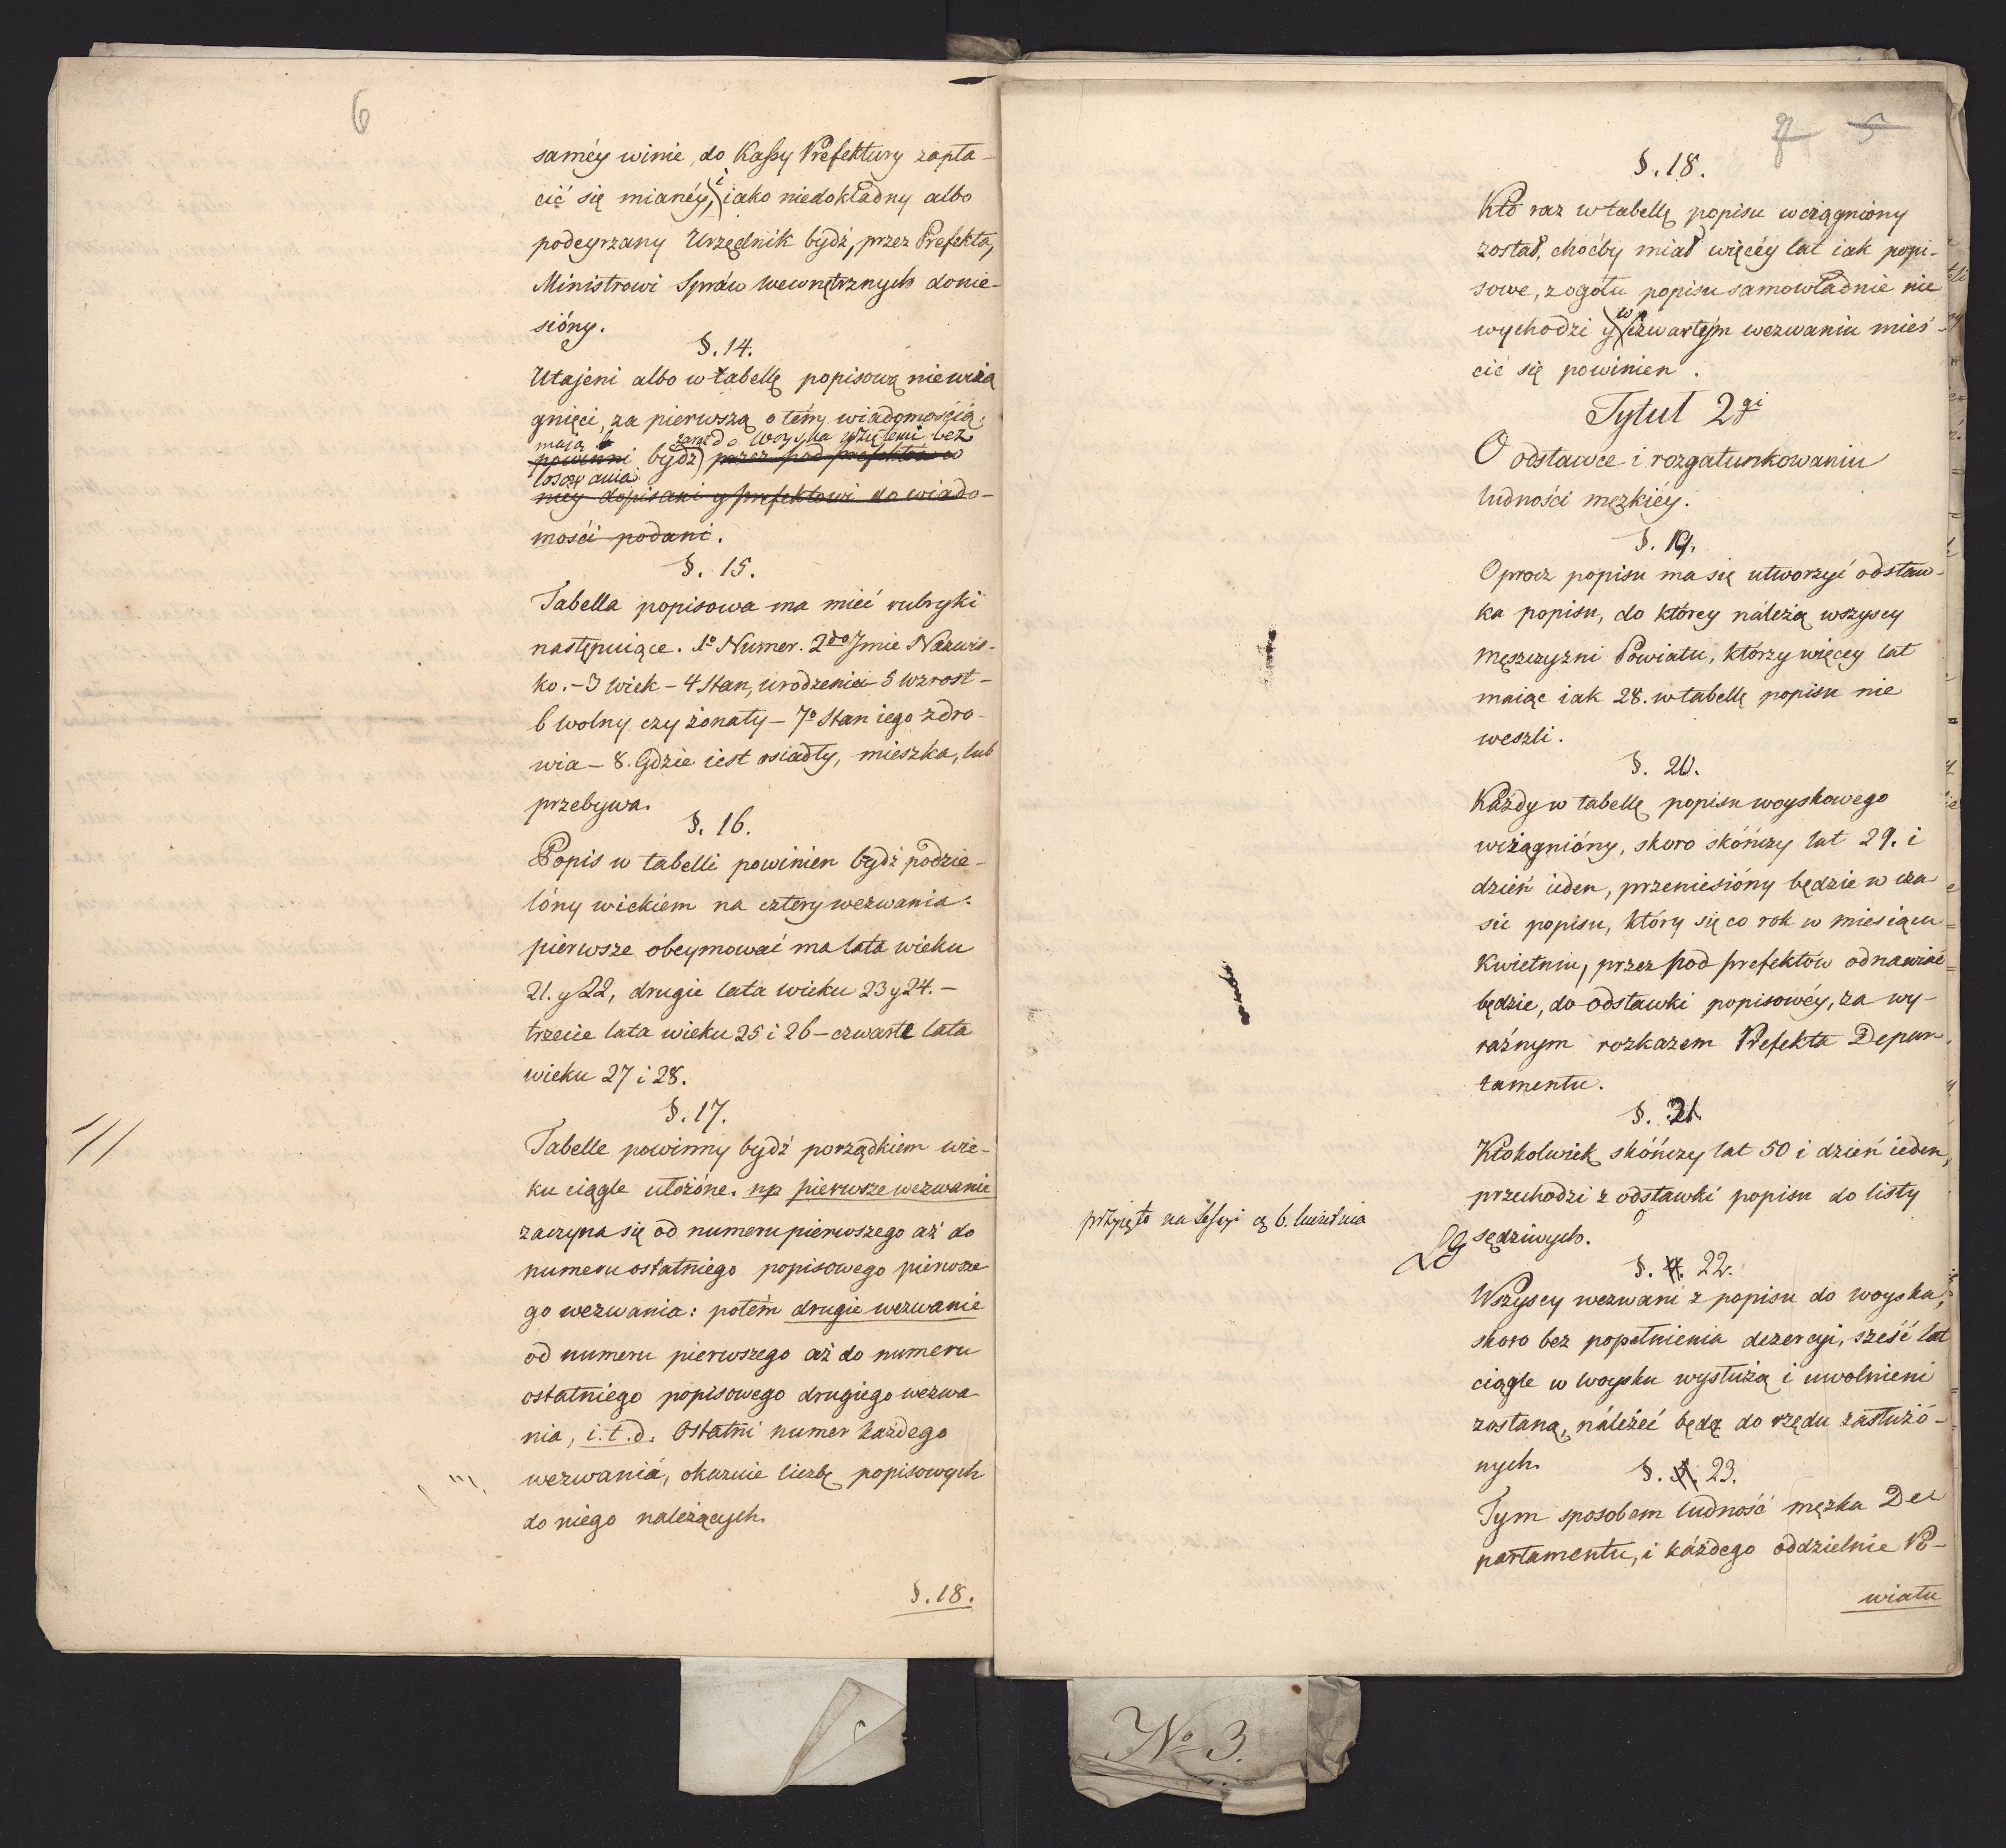 6
saméy winie, do Kassy Prefektury zapła-
cić się mianéy, i iako niedokładny albo
podeyrzany Urzędnik bydź, przez Prefekta,
Ministrowi Spráw wewnętrznych donie-
sióny.
§. 14.
Utajeni albo w tabellę popisową nie wcią
gnięci, za pierwszą o tém wiadomością,
mają zaraz do woyska wziętemi, bez
powinni bydź przez pod prefektów w
losowania
niey dopisani y prefektowi do wiado-
mości podani.
§. 15.
Tabella popisowa ma mieć rubryki
następuiące. 1º Numer. 2do Jmie Nazwis-
ko. - 3 wiek - 4 Stan, urodzenia - 5 wzrost -
6 wolny czy żonaty - 7º Stan iego zdro-
wia - 8. Gdzie iest osiadły, mieszka, lub
przebywa.
§. 16.
Popis w tabelli powinien bydź podzie-
lóny wiekiem na cztery wezwania:
pierwsze obeymować ma lata wieku
21. y 22, drugie lata wieku 23 y 24. -
trzecie lata wieku 25 i 26 - czwarte lata
wieku 27 i 28.
§. 17.
Tabelle powinny bydź porządkiem wie-
ku ciągle ułożóne. np pierwsze wezwanie
zaczyna się od numeru pierwszego aż do
numeru ostatniego popisowego pierwsze
go wezwania: potém drugie wezwanie
od numeru pierwszego aż do numeru
ostatniego popisowego drugiego wezwa-
nia, i.t.d. Ostatni numer każdego
wezwania, okazuie liczbę popisowych
do niego należących.
§. 18.
7 5
§. 18.
Kto raz w tabellę popisu wciągniony
został, choćby miał więcéy lat iak popi-
sowe, z ogołu popisu samowładnie nie
wychodzi y w czwartym wezwaniu mieś-
cić się powinien.
Tytuł 2gi
O odstawce i rozgatunkowaniu
ludności męzkiéy.
§. 19.
Oprocz popisu ma się utworzyć odstaw-
ka popisu, do którey náleżą wszyscy
męszczyzni Powiatu, którzy więcey lat
maiąc iak 28. w tabellę popisu nie
weszli.
§. 20.
Każdy w tabellę popisu woyskowego
wciągnióny, skoro skończy lat 29. i
dzień ieden, przeniesióny będzie w cza
sie popisu, który się co rok w miesiącu
Kwietniu, przez pod prefektów odnawiać
będzie, do odstawki popisowéy, za wy-
raźnym rozkazem Prefekta Depar-
tamentu.
§. 21.
Ktokolwiek skończy lat 50 i dzień ieden,
przechodzi z odstawki popisu do listy
sędziwych.
przyjęto na Sessyi d. 6. kwietnia
§. 22.
Wszyscy wezwani z popisu do woyska,
skoro bez popełnienia dezercyi, sześć lat
ciągle w woysku wysłużą i uwolnieni
zostaną, náleżeć będą do rzędu zasłużó-
nych.
§. 23.
Tym sposobem ludność męzka De
partamentu, i káżdego oddzielnie Po-
wiatu
No 3.